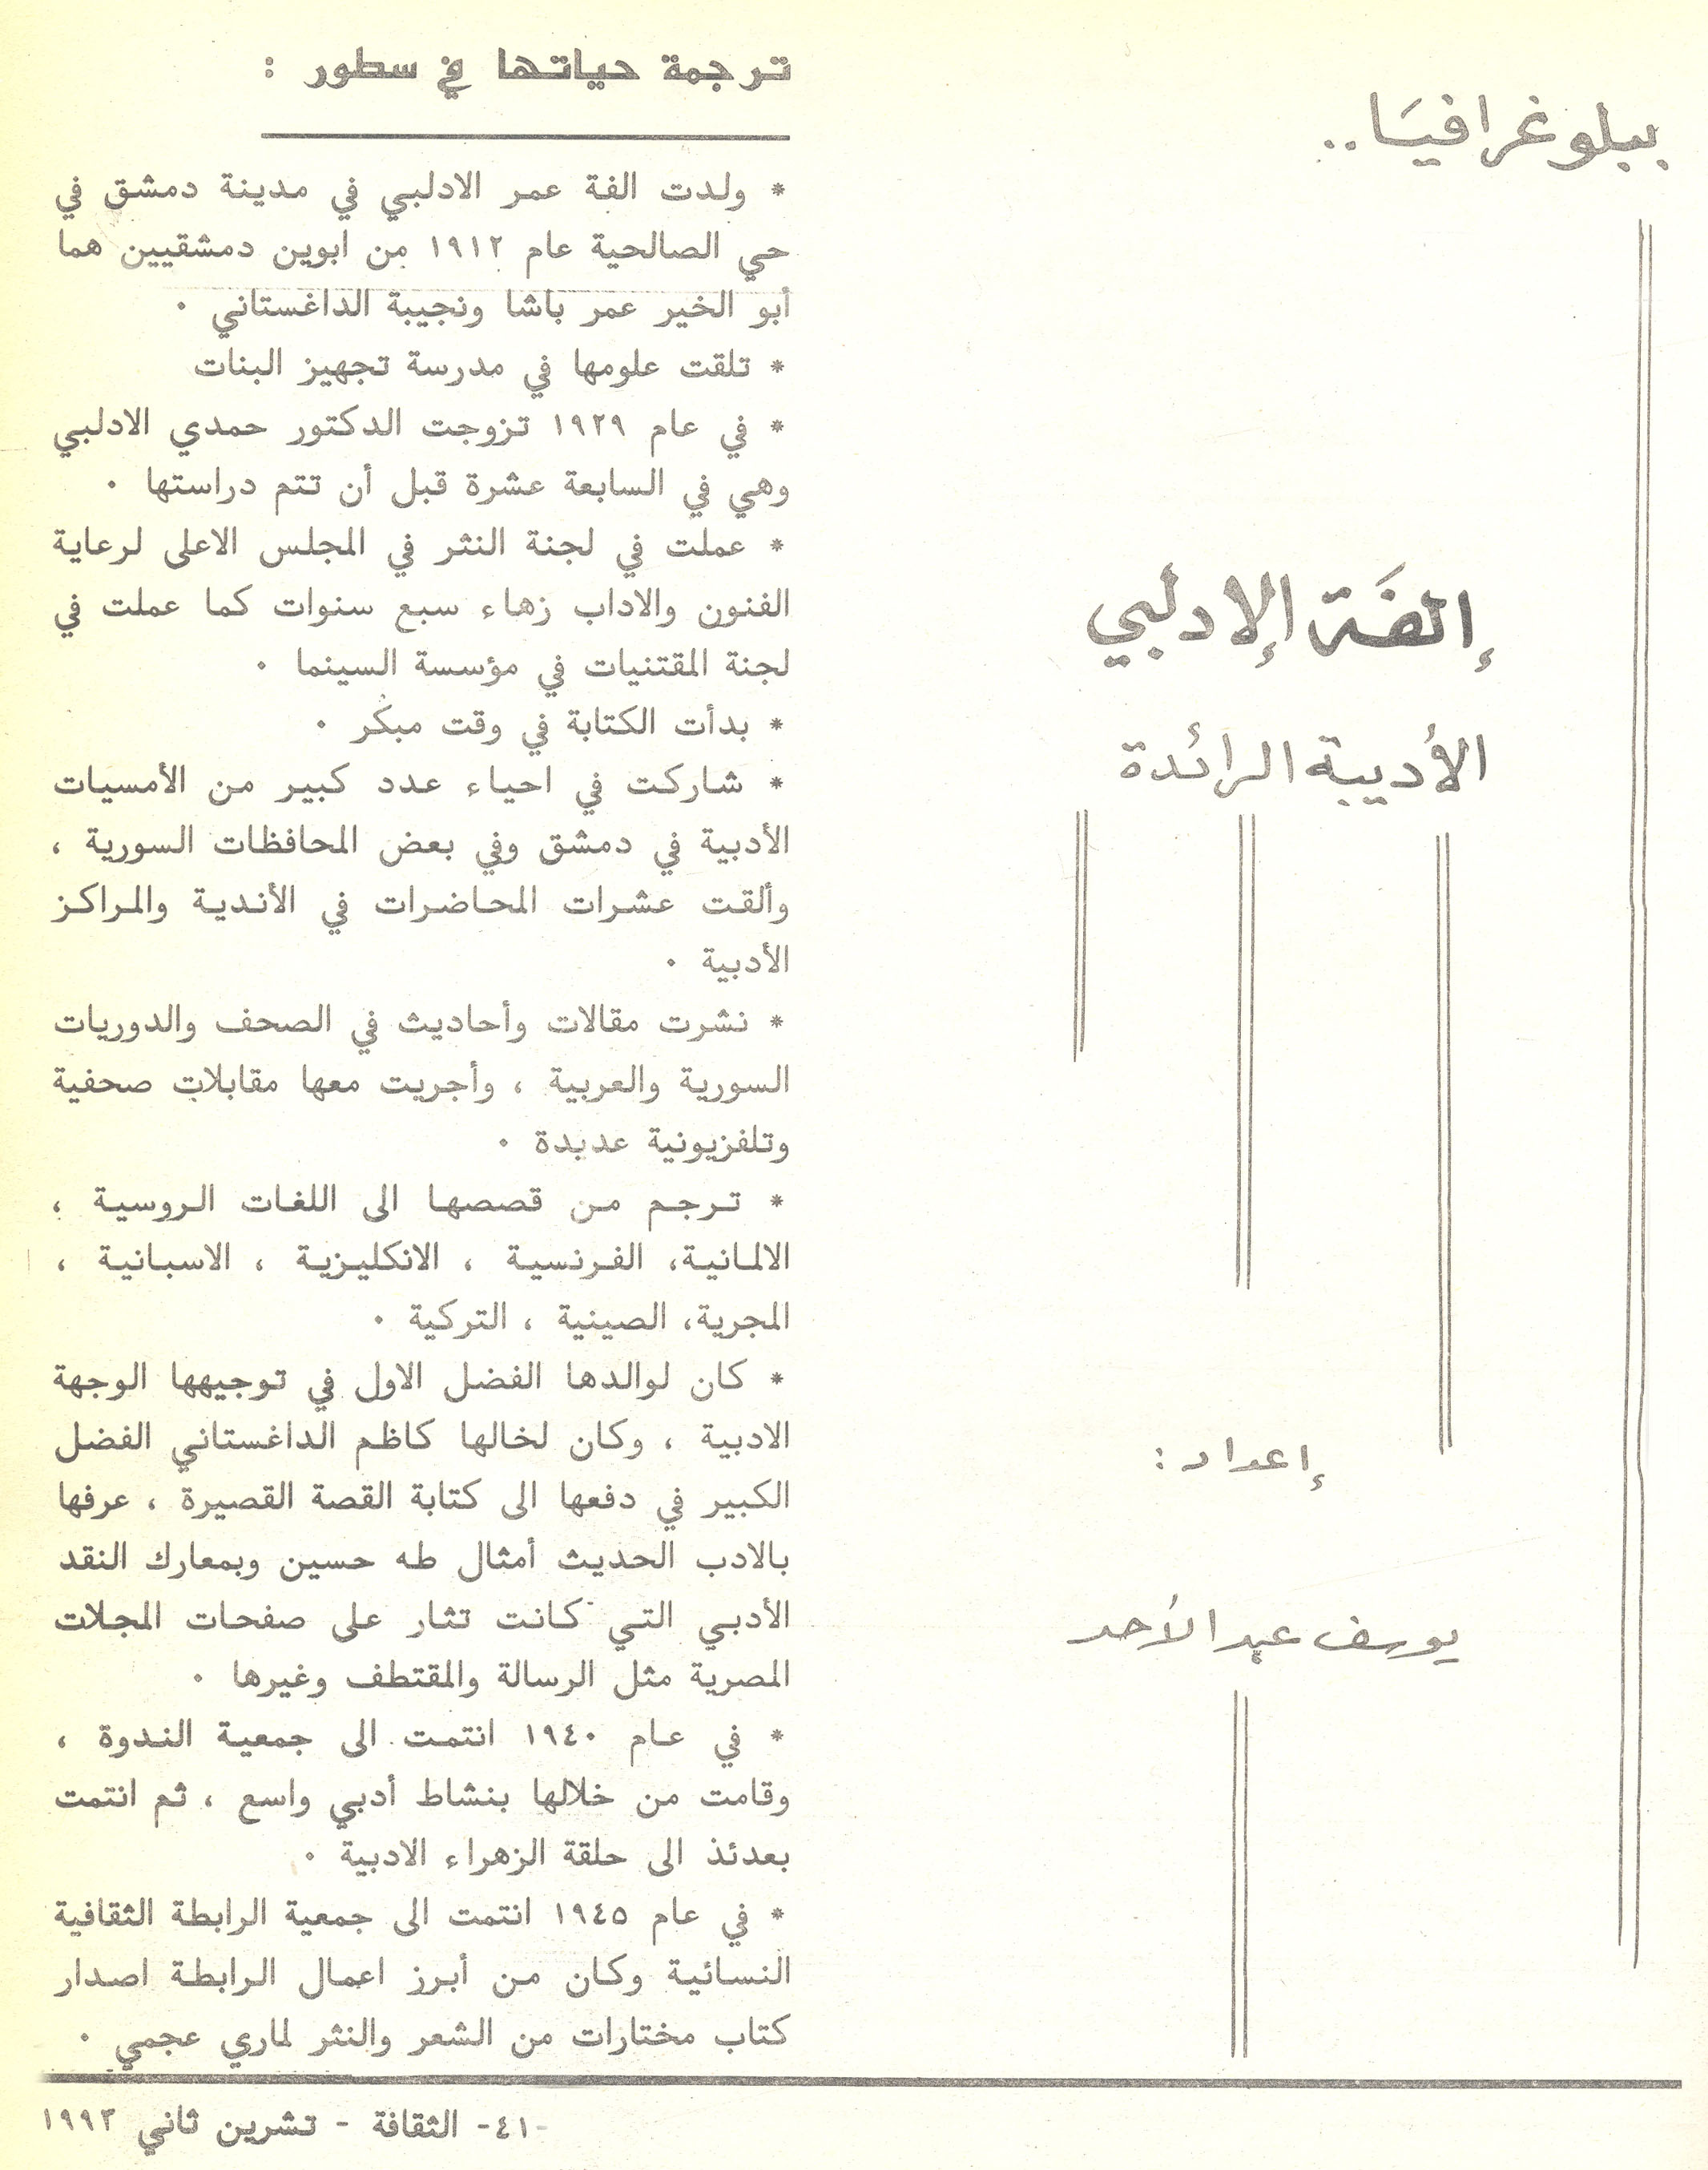 ببلوغرافيَا..
إلفَة الإدلبي
الأديبة الرائدة
إعداد :
يوسف عبد الأحد
ترجمة حياتها في سطور :
* ولدت الفة عمر الادلبي في مدينة دمشق في
حي الصالحية عام ١٩١٢ من ابوين دمشقيين هما
أبو الخير عمر باشا ونجيبة الداغستاني ٠
* تلقت علومها في مدرسة تجهيز البنات
* في عام ١٩٢٩ تزوجت الدكتور حمدي الادلبي
وهي في السابعة عشرة قبل أن تتم دراستها ٠
* عملت في لجنة النثر في المجلس الاعلى لرعاية
الفنون والاداب زهاء سبع سنوات كما عملت في
لجنة المقتنيات في مؤسسة السينما ٠
* بدأت الكتابة في وقت مبكر ٠
* شاركت في احياء عدد كبير من الأمسيات
الأدبية في دمشق وفي بعض المحافظات السورية ،
وألقت عشرات المحاضرات في الأندية والمراكز
الأدبية ٠
* نشرت مقالات وأحاديث في الصحف والدوريات
السورية والعربية ، وأجريت معها مقابلات صحفية
وتلفزيونية عديدة ٠
* ترجم من قصصها الى اللغات الروسية ،
الالمانية، الفرنسية ، الانكليزية ، الاسبانية ،
المجرية، الصينية ، التركية ٠
* كان لوالدها الفضل الاول في توجيهها الوجهة
الادبية ، وكان لخالها كاظم الداغستاني الفضل
الكبير في دفعها الى كتابة القصة القصيرة ، عرفها
بالادب الحديث أمثال طه حسين وبمعارك النقد
الأدبي التي كانت تثار على صفحات المجلات
المصرية مثل الرسالة والمقتطف وغيرها ٠
* في عام ١٩٤٠ انتمت الى جمعية الندوة ،
وقامت من خلالها بنشاط أدبي واسع ، ثم انتمت
بعدئذ الى حلقة الزهراء الادبية ٠
* في عام ١٩٤٥ انتمت الى جمعية الرابطة الثقافية
النسائية وكان من أبرز اعمال الرابطة اصدار
كتاب مختارات من الشعر والنثر لماري عجمي ٠
-٤١- الثقافة - تشرين ثاني ١٩٩٢